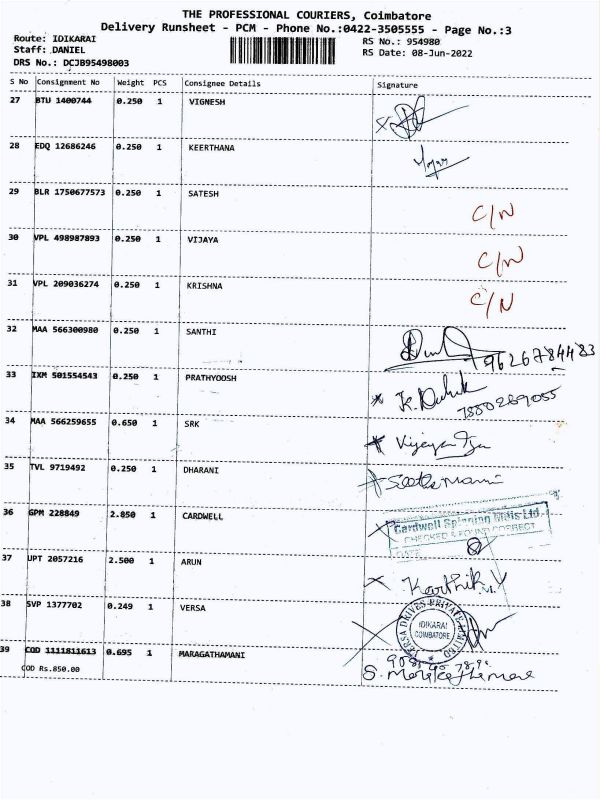 THE PROFESSIONAL COURIERS, Coimbatore
Delivery Runsheet - PCM - Phone No.:0422-3505555 - Page No.:3
Route: IDIKARAI
RS No.: 954980
Staff: DANIEL
RS Date: 08-Jun-2022
DRS No.: DCJB95498003
S No Consignment No Weight PCS Consignee Details Signature
27 BTU 1400744 0.250 1 VIGNESH
28 EDQ 12686246 0.250 1 KEERTHANA
29 BLR 1750677573 0.250 1 SATESH C/N
30 VPL 498987893 0.250 1 VIJAYA C/N
31 VPL 209036274 0.250 1 KRISHNA C/N
32 MAA 566300980 0.250 1 SANTHI 9626784483
33 IXM 501554543 0.250 1 PRATHYOOSH
34 MAA 566259655 0.650 1 SRK
35 TVL 9719492 0.250 1 DHARANI
36 GPM 228849 2.850 1 CARDWELL
Cardwell Spinning Mills Ltd.
CHECKED & FOUND CORRECT
DATE
37 UPT 2057216 2.500 1 ARUN Karthik.V
38 SVP 1377702 0.249 1 VERSA
VERSA DRIVES PRIVATE LIMITED
IDIKARAI
COIMBATORE
39 COD 1111811613 0.695 1 MARAGATHAMANI
COD Rs.850.00